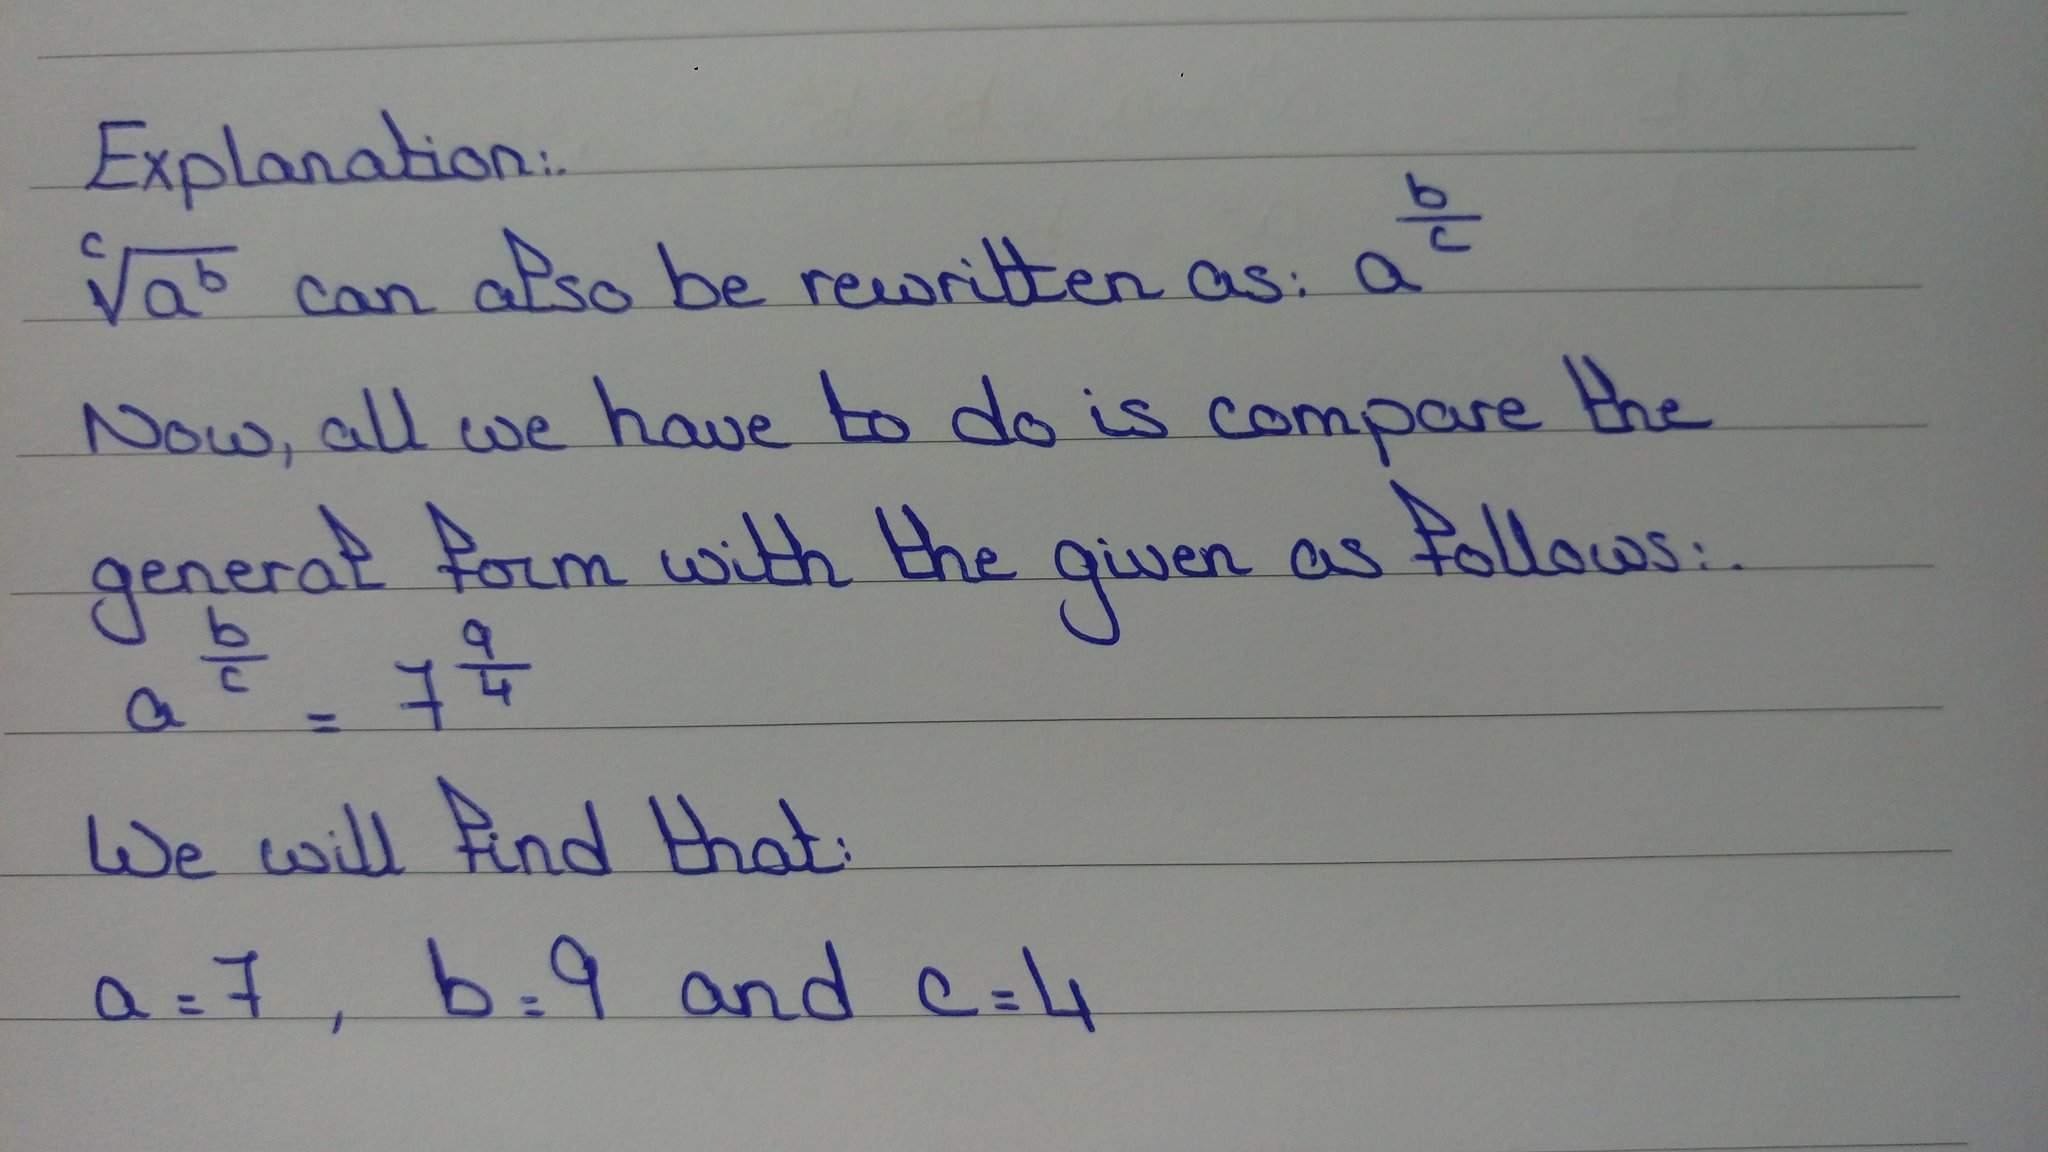 Explanation:.
$\sqrt[c]{a^b}$ can also be rewritten as: $a^{\frac{b}{c}}$
Now, all we have to do is compare the
general form with the given as follows:.
$a^{\frac{b}{c}} = 7^{\frac{9}{4}}$
We will find that:
a=7, b=9 and c=4